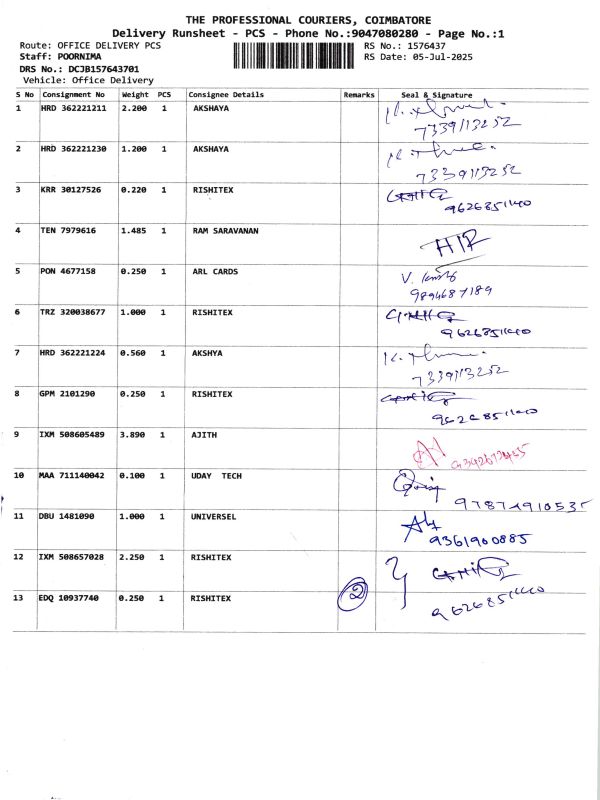 THE PROFESSIONAL COURIERS, COIMBATORE
Delivery Runsheet - PCS - Phone No.:9047080280 - Page No.:1
Route: OFFICE DELIVERY PCS
RS No.: 1576437
Staff: POORNIMA
RS Date: 05-Jul-2025
DRS No.: DCJB157643701
Vehicle: Office Delivery
S No Consignment No Weight PCS Consignee Details Remarks Seal & Signature
1 HRD 362221211 2.200 1 AKSHAYA
7339113252
2 HRD 362221230 1.200 1 AKSHAYA
7339113252
3 KRR 30127526 0.220 1 RISHITEX
4 TEN 7979616 1.485 1 RAM SARAVANAN
5 PON 4677158 0.250 1 ARL CARDS
9894687189
6 TRZ 320038677 1.000 1 RISHITEX
7 HRD 362221224 0.560 1 AKSHYA
7339113252
8 GPM 2101290 0.250 1 RISHITEX
9 IXM 508605489 3.890 1 AJITH
10 MAA 711140042 0.100 1 UDAY TECH
11 DBU 1481090 1.000 1 UNIVERSEL
9361900885
12 IXM 508657028 2.250 1 RISHITEX
2
13 EDQ 10937740 0.250 1 RISHITEX